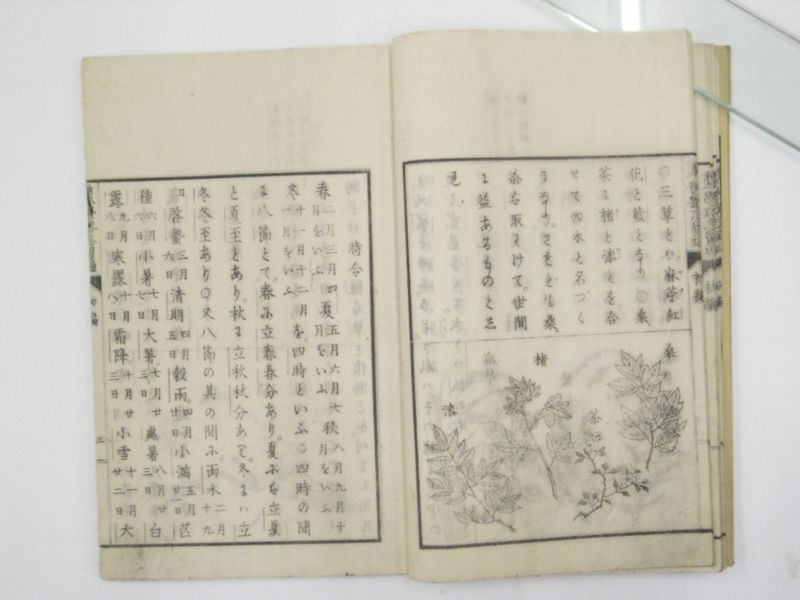 〇三草とハ麻苧紅
花と藍となり〇桑
茶に楮と漆とを合
せて四木と名づく
桑
茶を取わけて。世間
に益あるものと志
桑
茶
楮
漆
時令
春二月三月四月をいふ夏五月六月七月をいふ秋八月九月十月をいふ
冬十一月十二月を。四時といふ〇四時の間
に八節とて。春に立春春分あり。夏にも立夏
と夏至とあり。秋は立秋秋分あり。冬にハ立
冬冬至あり〇又八節の其の間に雨水二月十九
日啓蟄三月五日清明四月五日穀雨四月廿日小満五月廿一日芒
種六月六日小暑七月七日大暑七月廿三日處暑八月廿三日白
露九月八日寒露十月八日霜降十月廿三日小雪十一月廿二日大
初編
三